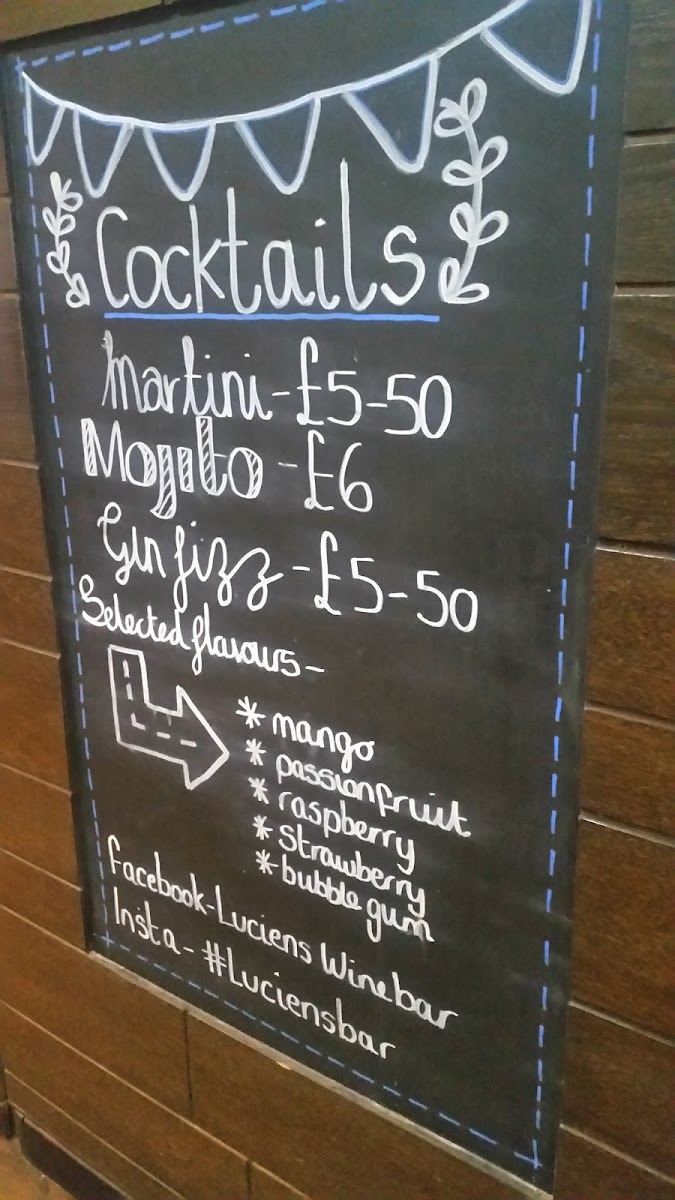 Cocktails
Martini - £5-50
Mojito - £6
Gin fizz - £5-50
Selected flavours -
* mango
* passionfruit
* raspberry
* Strawberry
* bubble gum
Facebook - Luciens Winebar
Insta - #Luciensbar